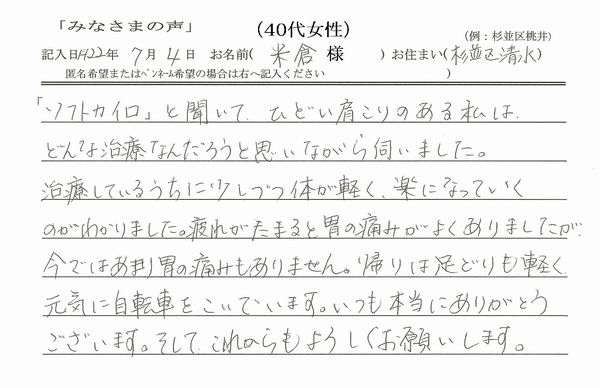 「みなさまの声」 (40代女性) (例：杉並区桃井)
記入日H22年 7月 4日 お名前( 米倉 様 )お住まい(杉並区清水)
匿名希望またはペンネーム希望の場合は右へ記入ください( )
「ソフトカイロ」と聞いて、ひどい肩こりのある私は、
どんな治療なんだろうと思いながら伺いました。
治療しているうちに少しづつ体が軽く、楽になっていく
のがわかりました。疲れがたまると胃の痛みがよくありましたが、
今ではあまり胃の痛みもありません。帰りは足どりも軽く、
元気に自転車をこいでいます。いつも本当にありがとう
ございます。そして、これからもよろしくお願いします。